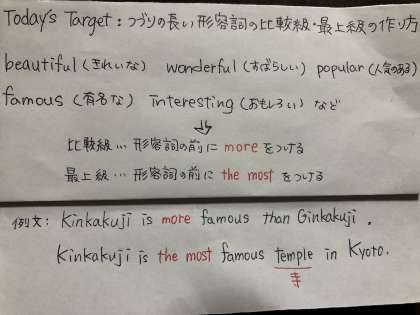 Today's Target : つづりの長い形容詞の比較級・最上級の作り方
beautiful (きれいな) wonderful (すばらしい) popular (人気のある)
famous (有名な) interesting (おもしろい) など
⇓
比較級… 形容詞の前に more をつける
最上級… 形容詞の前に the most をつける
例文: Kinkakuji is more famous than Ginkakuji.
Kinkakuji is the most famous temple in Kyoto.
寺